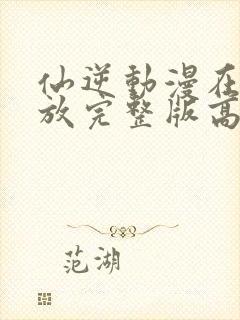 仙逆動漫在
放完整版高
范湖